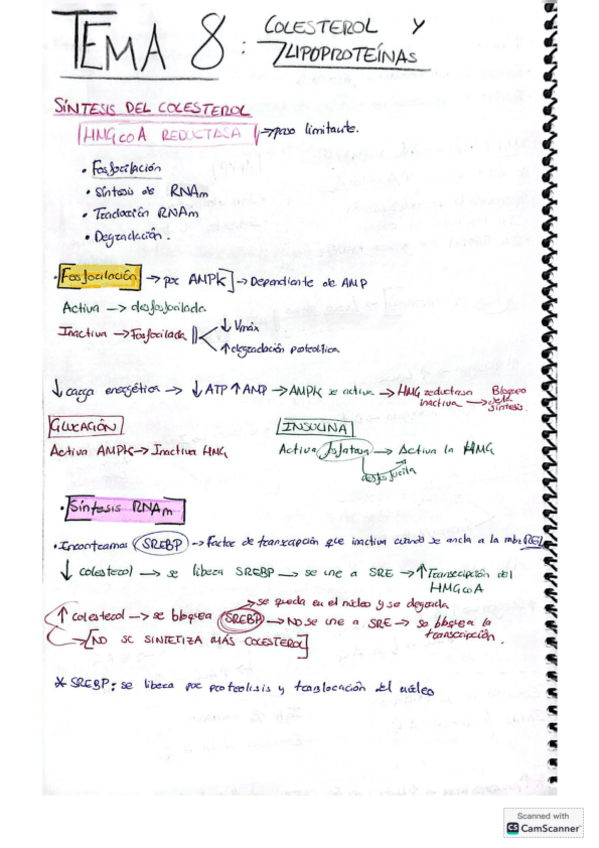 TEMA 8: COLESTEROL Y
LIPOPROTEÍNAS
SÍNTESIS DEL COLESTEROL
HMGCOA REDUCTASA → paso limitante.
• Fosfocilación
• Síntesis de RNAm
• Traducción RNAm
• Degradación.
• Fosfocilación → por AMPK → Dependiante de AMP
Activa → desfosfocilada
Inactiva → Fosfocilada ↓ Vmáx
↑ degradación proteolítica
↓ carga energética → ↓ ATP ↑ AMP → AMPK se activa → HMG reductasa inactiva → Bloqueo de la síntesis.
GLUCAGÓN
Activa AMPK → Inactiva HMG
INSULINA
Activa fosfatasa → Activa la HMG
desfosfocila
• Síntesis RNAm
• Encontramos SREBP → Factor de transcripción que inactiva cuando se ancla a la mbz REL
↓ colesterol → se libera SREBP → se une a SRE → ↑ Transcripción del HMGCOA
→ se queda en el núcleo y se degrada
↑ colesterol → se bloquea SREBP → NO se une a SRE → se bloquea la transcripción.
→ NO SE SINTETIZA MÁS COLESTEROL
* SREBP: se libera por proteolisis y translocación del núcleo
Scanned with
CS CamScanner